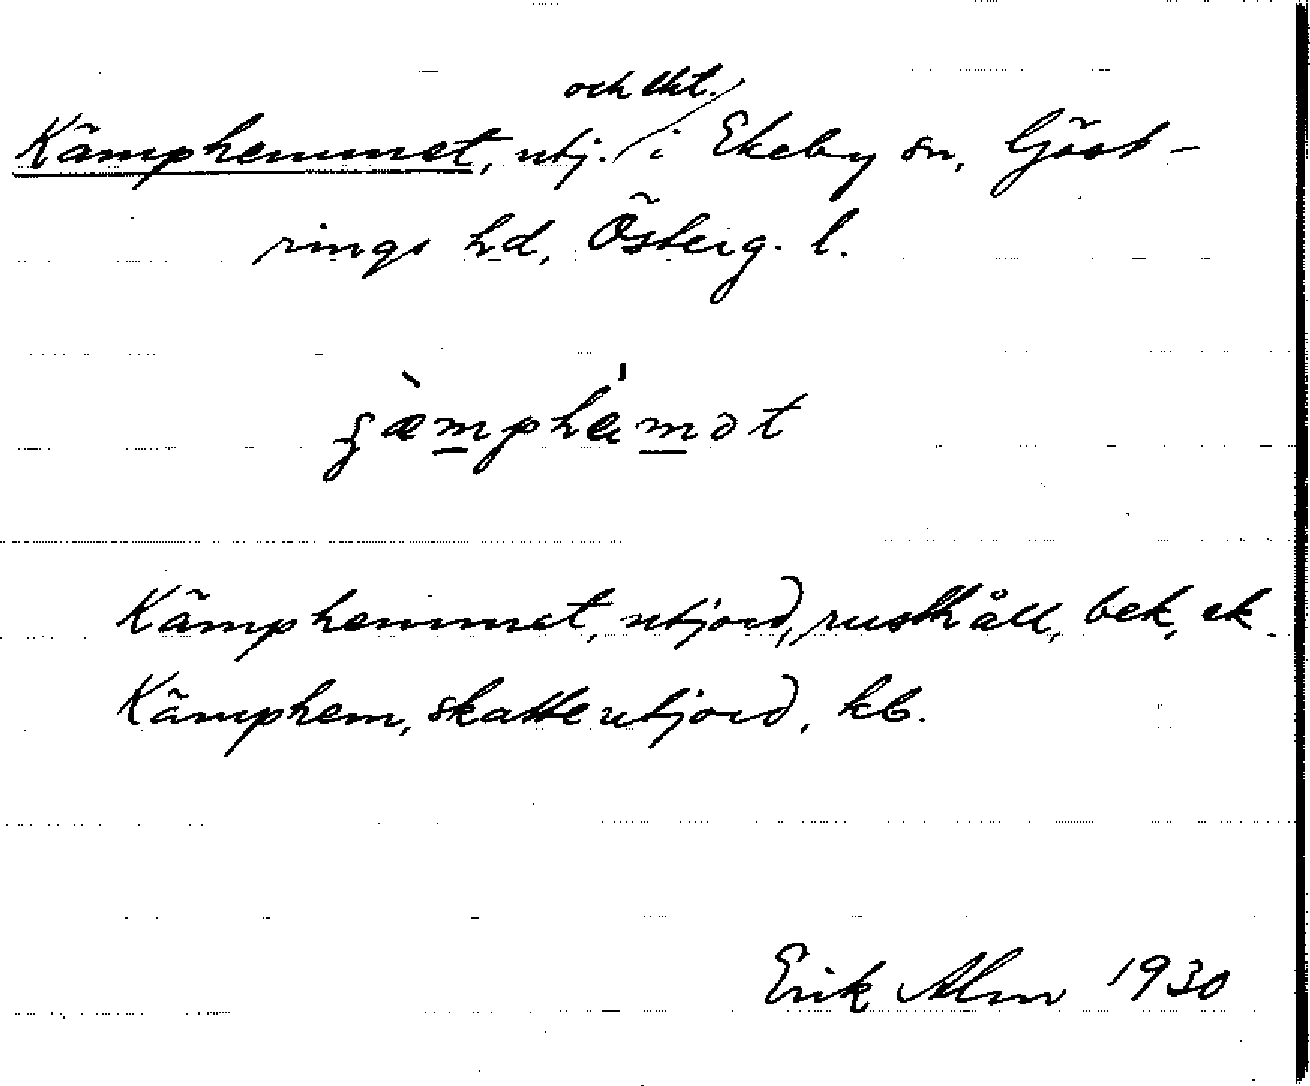 och lht.
Kämphemmet, utj. i Ekeby sn, Göst-
rings hd, Österg. l.
Kämphemmet, utjord, rusthåll, bek, ek.
Kämphem, skatteutjord, kb.
Erik Alm 1930